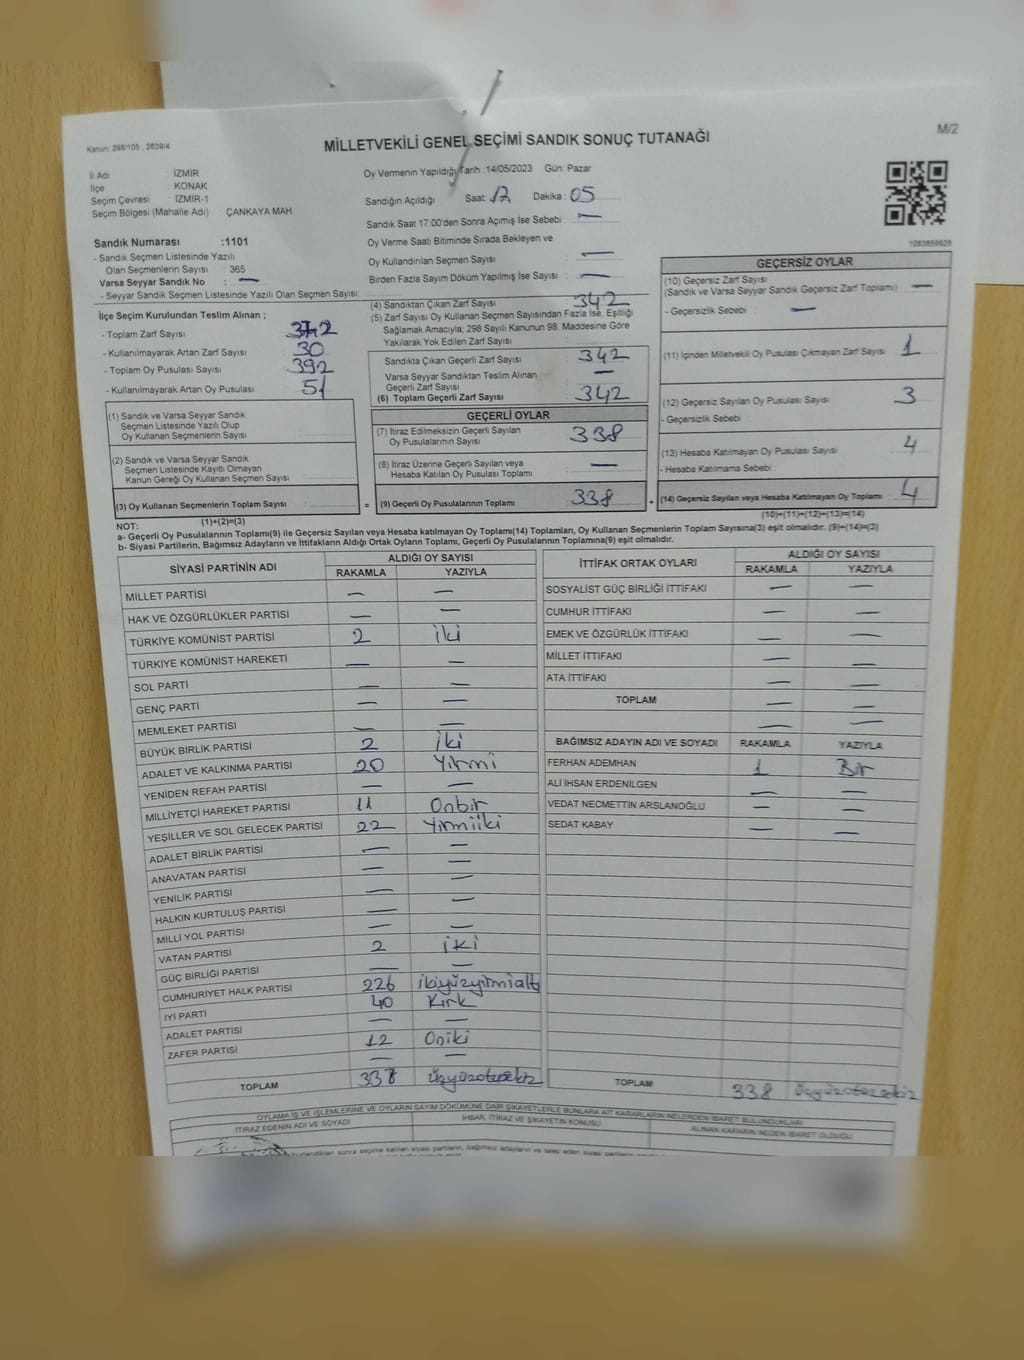 M/2
Kanun: 298/105 , 2839/4
MİLLETVEKİLİ GENEL SEÇİMİ SANDIK SONUÇ TUTANAĞI
İl Adı : İZMİR
İlçe : KONAK
Seçim Çevresi : İZMİR-1
Seçim Bölgesi (Mahalle Adı) : ÇANKAYA MAH
Oy Vermenin Yapıldığı Tarih :14/05/2023 Gün: Pazar
Sandığın Açıldığı Saat: 17 Dakika : 05
Sandık Saat 17:00'den Sonra Açımış İse Sebebi : —
Oy Verme Saati Bitiminde Sırada Bekleyen ve
Oy Kullandırılan Seçmen Sayısı : —
Birden Fazla Sayım Döküm Yapılmış İse Sayısı : —
1083859928
Sandık Numarası :1101
- Sandık Seçmen Listesinde Yazılı
Olan Seçmenlerin Sayısı : 365
Varsa Seyyar Sandık No : —
- Seyyar Sandık Seçmen Listesinde Yazılı Olan Seçmen Sayısı:
İlçe Seçim Kurulundan Teslim Alınan ;
- Toplam Zarf Sayısı : 372
- Kullanılmayarak Artan Zarf Sayısı : 30
- Toplam Oy Pusulası Sayısı : 392
- Kullanılmayarak Artan Oy Pusulası : 51
(1) Sandık ve Varsa Seyyar Sandık
Seçmen Listesinde Yazılı Olup
Oy Kullanan Seçmenlerin Sayısı :
(2) Sandık ve Varsa Seyyar Sandık
Seçmen Listesinde Kayıtlı Olmayan
Kanun Gereği Oy Kullanan Seçmen Sayısı :
(3) Oy Kullanan Seçmenlerin Toplam Sayısı :
(1)+(2)=(3)
(4) Sandıktan Çıkan Zarf Sayısı : 342
(5) Zarf Sayısı Oy Kullanan Seçmen Sayısından Fazla İse, Eşitliği
Sağlamak Amacıyla; 298 Sayılı Kanunun 98. Maddesine Göre
Yakılarak Yok Edilen Zarf Sayısı :
Sandıkta Çıkan Geçerli Zarf Sayısı : 342
Varsa Seyyar Sandıktan Teslim Alınan
Geçerli Zarf Sayısı : —
(6) Toplam Geçerli Zarf Sayısı : 342
GEÇERLİ OYLAR
(7) İtiraz Edilmeksizin Geçerli Sayılan
Oy Pusulalarının Sayısı : 338
(8) İtiraz Üzerine Geçerli Sayılan veya
Hesaba Katılan Oy Pusulası Toplamı : —
= (9) Geçerli Oy Pusulalarının Toplamı : 338
GEÇERSİZ OYLAR
(10) Geçersiz Zarf Sayısı
(Sandık ve Varsa Seyyar Sandık Geçersiz Zarf Toplamı) : —
- Geçersizlik Sebebi : —
(11) İçinden Milletvekili Oy Pusulası Çıkmayan Zarf Sayısı : 1
(12) Geçersiz Sayılan Oy Pusulası Sayısı : 3
- Geçersizlik Sebebi :
(13) Hesaba Katılmayan Oy Pusulası Sayısı : 4
- Hesaba Katılmama Sebebi :
+ (14) Geçersiz Sayılan veya Hesaba Katılmayan Oy Toplamı : 4
(10)+(11)+(12)+(13)=(14)
NOT:
a- Geçerli Oy Pusulalarının Toplamı(9) ile Geçersiz Sayılan veya Hesaba katılmayan Oy Toplamı(14) Toplamları, Oy Kullanan Seçmenlerin Toplam Sayısına(3) eşit olmalıdır. (9)+(14)=(3)
b- Siyasi Partilerin, Bağımsız Adayların ve İttifakların Aldığı Ortak Oyların Toplamı, Geçerli Oy Pusulalarının Toplamına(9) eşit olmalıdır.
SİYASİ PARTİNİN ADI ALDIĞI OY SAYISI
RAKAMLA YAZIYLA
MİLLET PARTİSİ — —
HAK VE ÖZGÜRLÜKLER PARTİSİ — —
TÜRKİYE KOMÜNİST PARTİSİ 2 iki
TÜRKİYE KOMÜNİST HAREKETİ — —
SOL PARTİ — —
GENÇ PARTİ — —
MEMLEKET PARTİSİ — —
BÜYÜK BİRLİK PARTİSİ 2 iki
ADALET VE KALKINMA PARTİSİ 20 Yirmi
YENİDEN REFAH PARTİSİ — —
MİLLİYETÇİ HAREKET PARTİSİ 11 Onbir
YEŞİLLER VE SOL GELECEK PARTİSİ 22 Yirmiiki
ADALET BİRLİK PARTİSİ — —
ANAVATAN PARTİSİ — —
YENİLİK PARTİSİ — —
HALKIN KURTULUŞ PARTİSİ — —
MİLLİ YOL PARTİSİ — —
VATAN PARTİSİ 2 iki
GÜÇ BİRLİĞİ PARTİSİ — —
CUMHURİYET HALK PARTİSİ 226 ikiyüzyirmialtı
İYİ PARTİ 40 Kırk
ADALET PARTİSİ — —
ZAFER PARTİSİ 12 Oniki
— —
TOPLAM 338 üçyüzotuzsekiz
İTTİFAK ORTAK OYLARI ALDIĞI OY SAYISI
RAKAMLA YAZIYLA
SOSYALİST GÜÇ BİRLİĞİ İTTİFAKI — —
CUMHUR İTTİFAKI — —
EMEK VE ÖZGÜRLÜK İTTİFAKI — —
MİLLET İTTİFAKI — —
ATA İTTİFAKI — —
TOPLAM — —
— —
BAĞIMSIZ ADAYIN ADI VE SOYADI RAKAMLA YAZIYLA
FERHAN ADEMHAN 1 Bir
ALİ İHSAN ERDENİLGEN — —
VEDAT NECMETTİN ARSLANOĞLU — —
SEDAT KABAY — —
TOPLAM 338 üçyüzotuzsekiz
OYLAMA İŞ VE İŞLEMLERİNE VE OYLARIN SAYIM DÖKÜMÜNE DAİR ŞİKAYETLERLE BUNLARA AİT KARARLARIN NELERDEN İBARET BULUNDUKLARI
İTİRAZ EDENİN ADI VE SOYADI İHBAR, İTİRAZ VE ŞİKAYETİN KONUSU ALINAN KARARIN NEDEN İBARET OLDUĞU